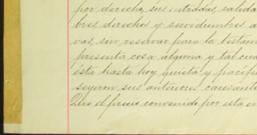 por derecho, sus entradas, salida
bres derechos y servidumbres a
vas, sin reservar para la testam
presenta cosa alguna y tal cua
ésta hasta hoy, quieta y pacífic
seyeron sus anteriores causante
Que el precio convenido por esta